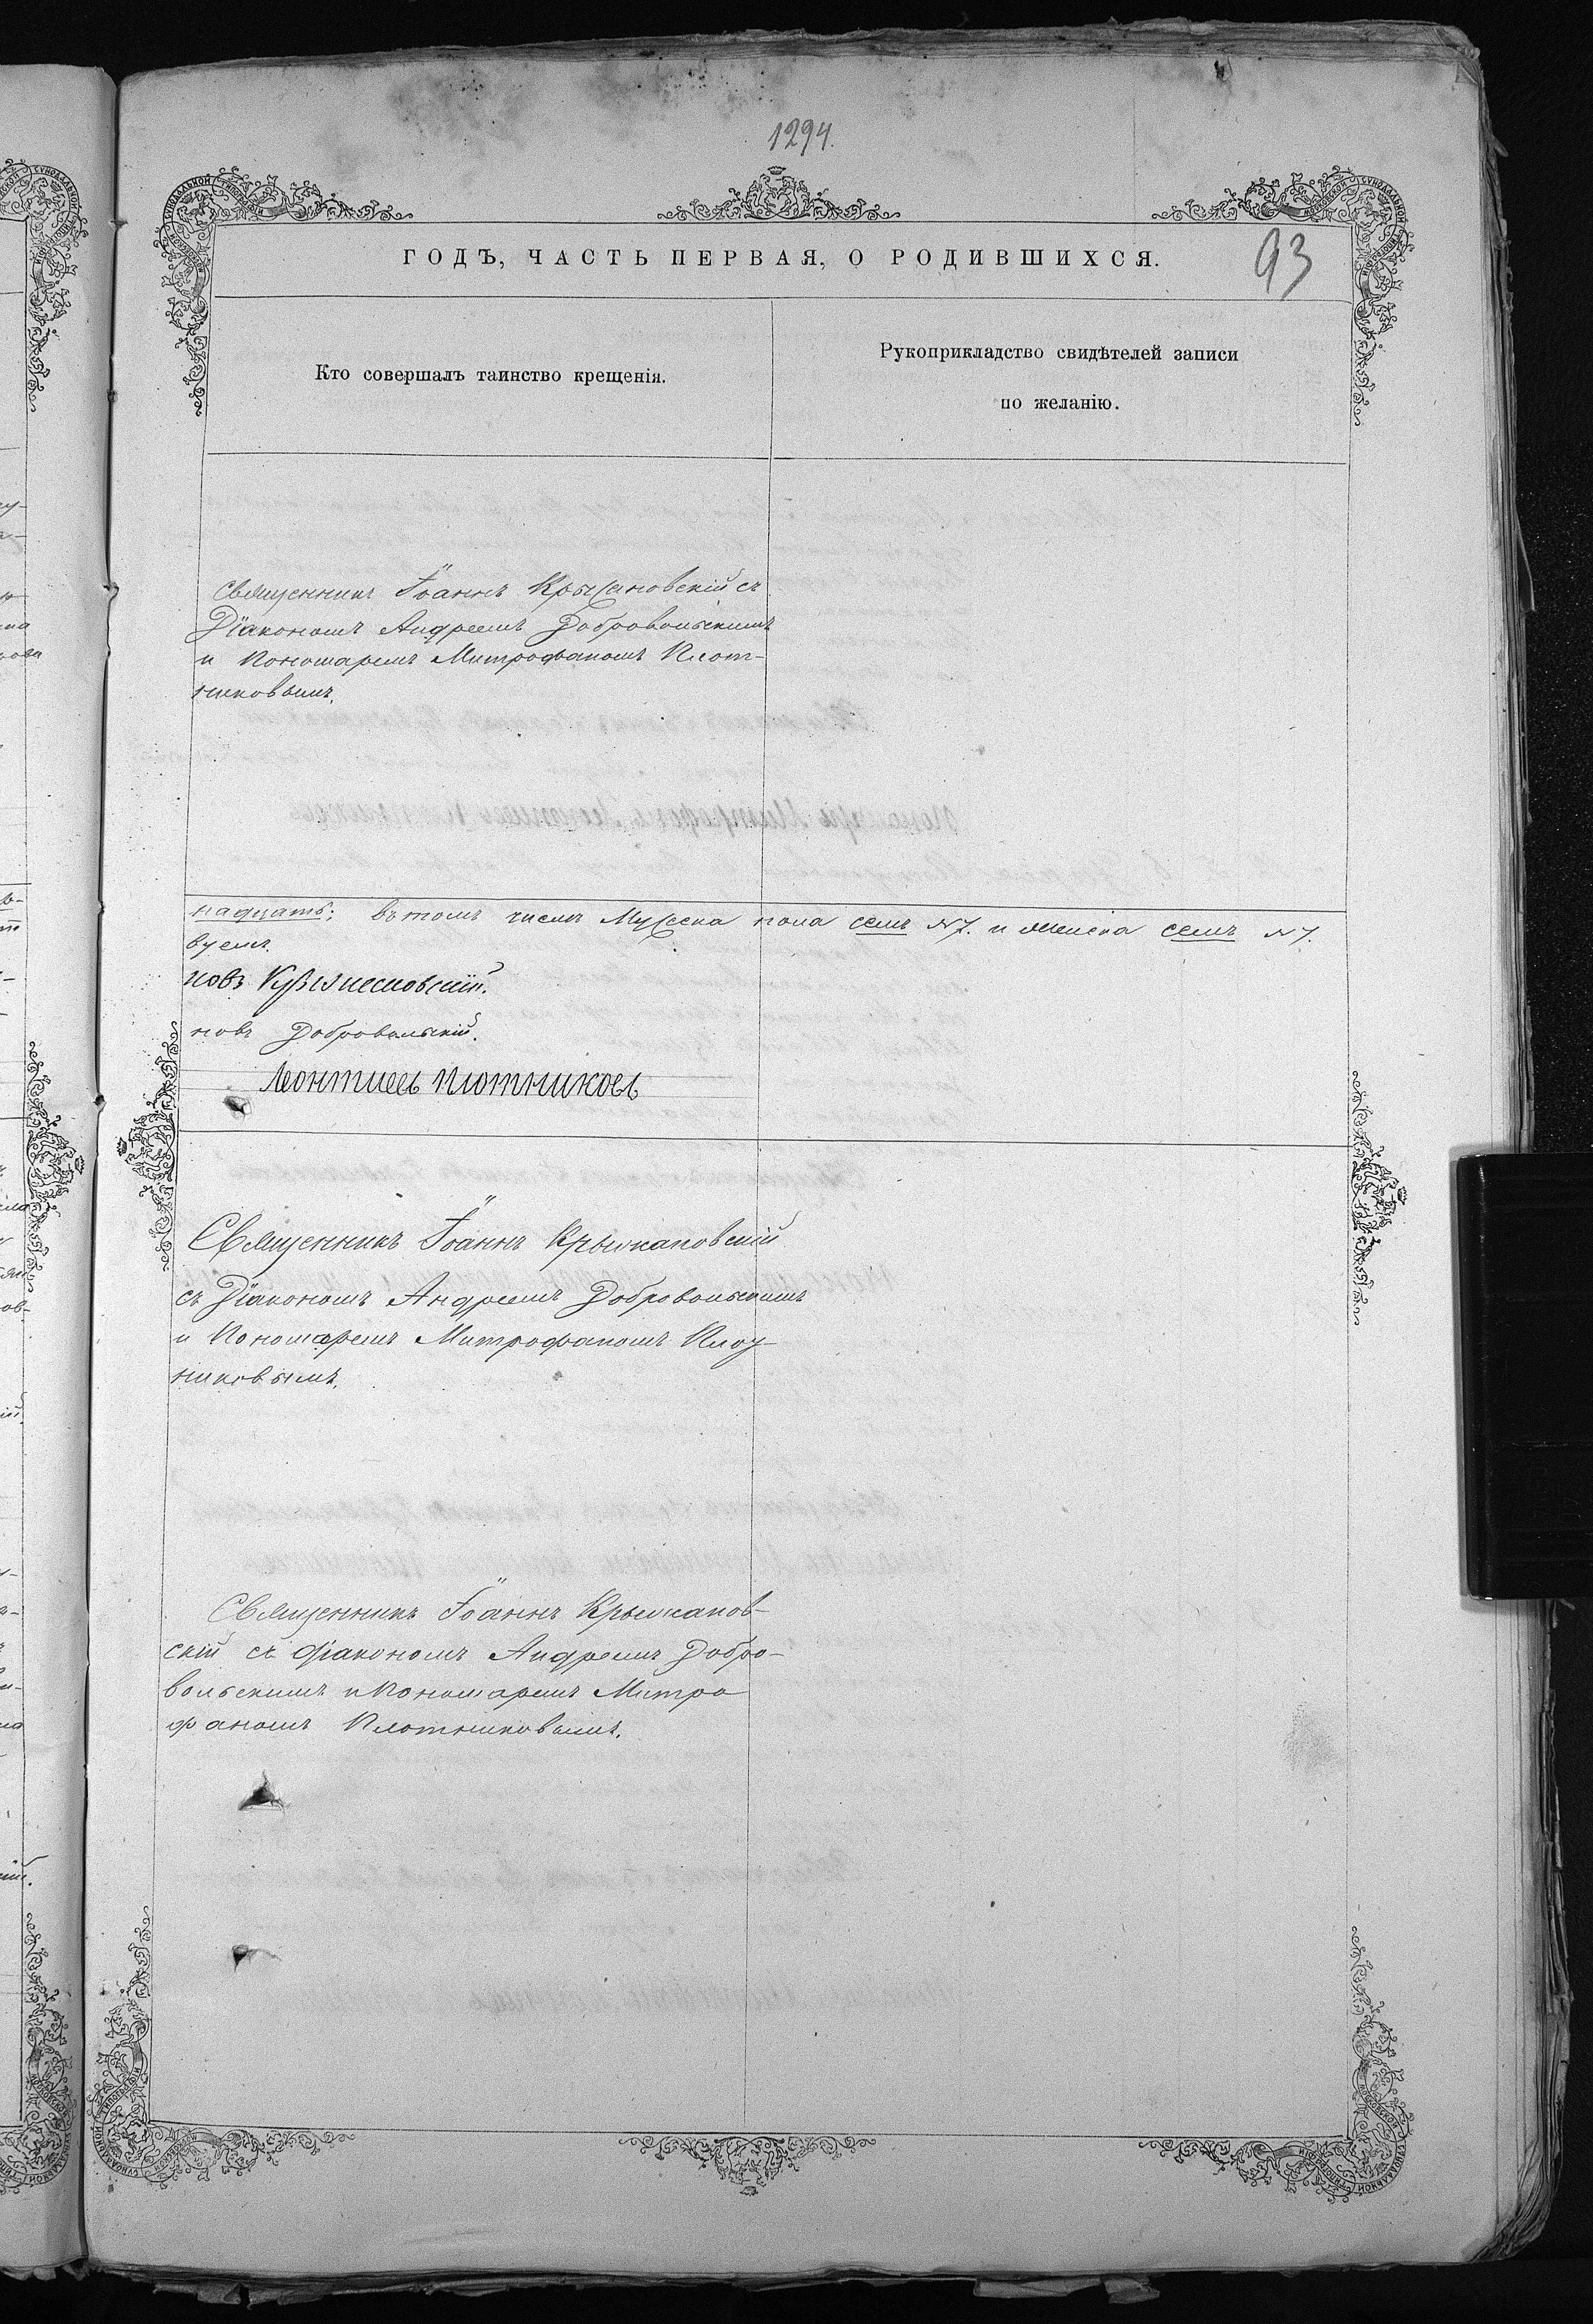 1294.
ГОДЪ, ЧАСТЬ ПЕРВАЯ, О РОДИВШИХСЯ.
93
Кто совершалъ таинство крещенія.
Рукоприкладство свидѣтелей записи
по желанію.
Священникъ Іоаннъ Крыжановскій съ
Діакономъ Андреемъ Добровольскимъ
и Пономаремъ Митрофаномъ Плот-
никовымъ.
надцать; въ томъ числѣ Мужеска пола семь №7. и женска семь №7.
вуемъ.
новъ Крыжановскій.
новъ Добровольскій.
Леонтиевъ Плотниковъ
Священникъ Іоаннъ Крыжановскій
съ Діакономъ Андреемъ Добровольскимъ
и Пономаремъ Митрофаномъ Плот-
никовымъ.
Священникъ Іоаннъ Крыжанов-
скій съ діакономъ Андреемъ Добро-
вольскимъ и Пономаремъ Митро
фаномъ Плотниковымъ.